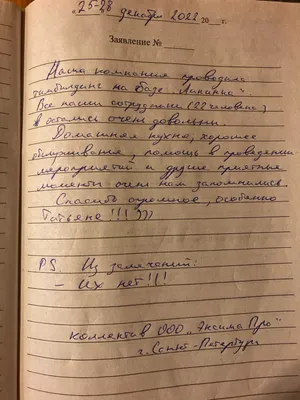 „25-28 декабря 2022 20 г.
Заявление №
Наша компания проводила
тимбилдинг на Базе „Лапанно"
Все наши сотрудники (22 человека)
остались очень довольны.
Домашняя кухня, хорошее
обслуживание, помощь в проведении
мероприятий и другие приятные
моменты очень нам запомнились.
Спасибо огромное, особенно
Татьяне!!! )))
P.S. Из замечаний:
- Их нет!!!
коллектив ООО „Энсима Про"
г. Санкт-Петербург